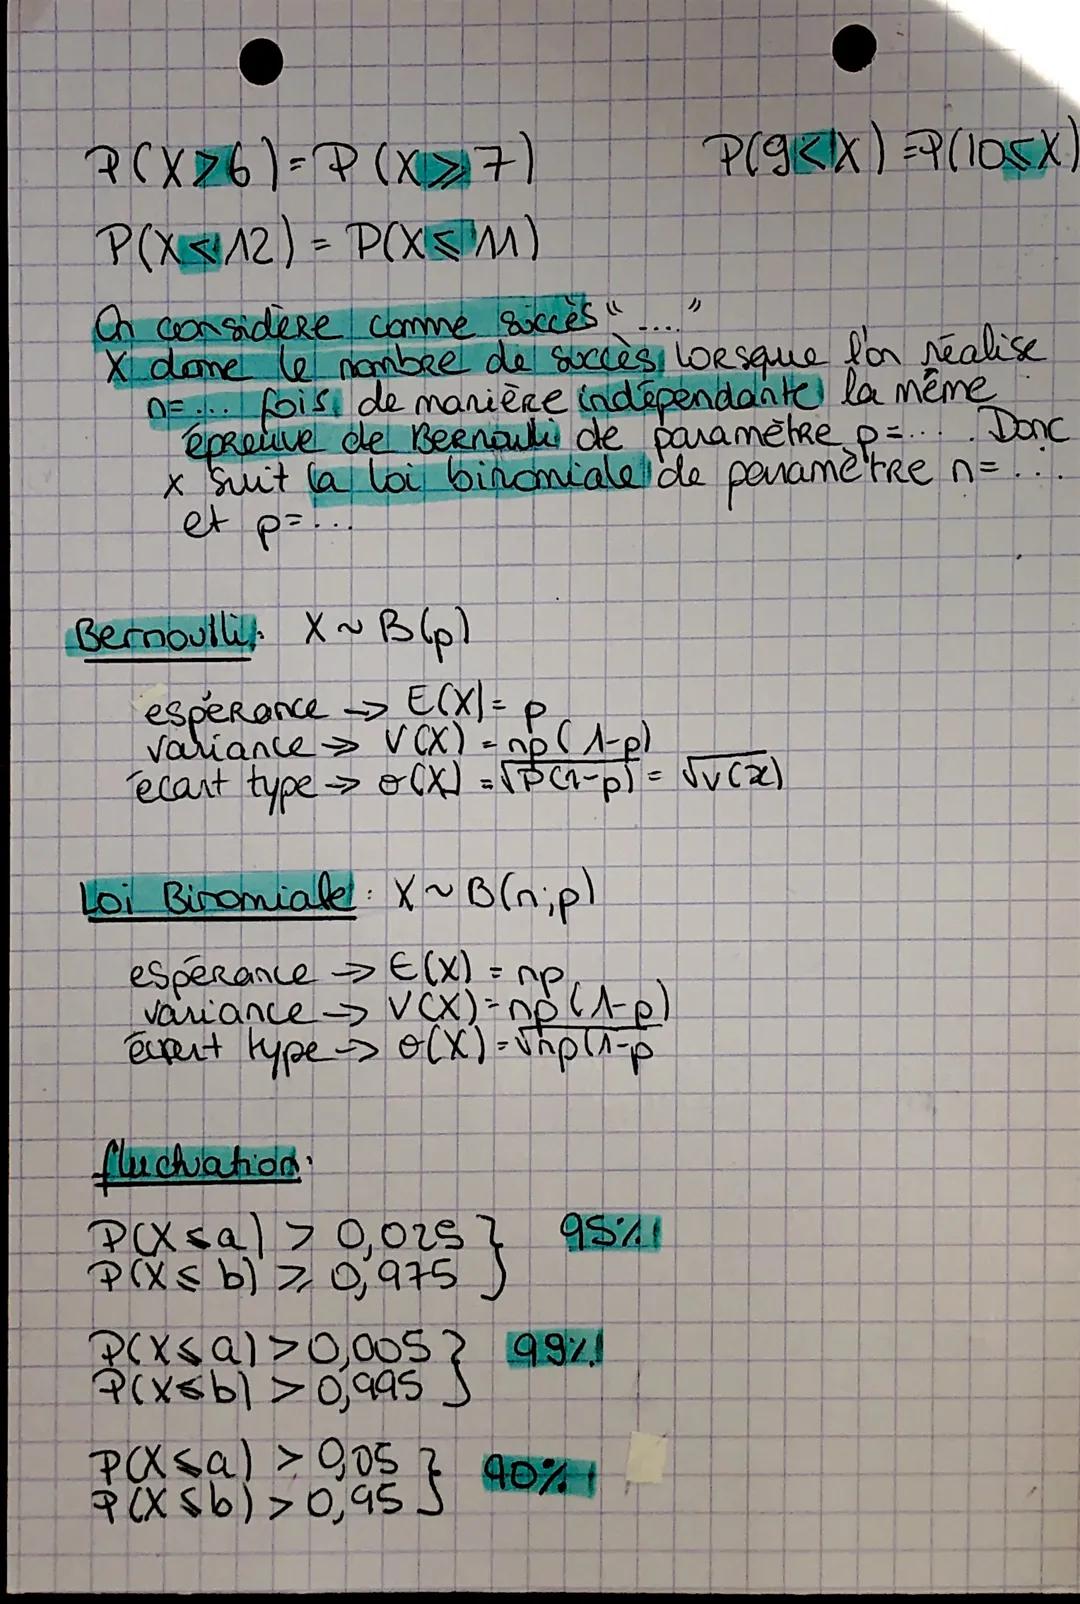 P(X>6)=P(X⩾7)
P(9<X)=P(10≤X)
P(X<12) = P(X≤11)
On considère comme succès "...."
X donne le nombre de succès lorsque l'on réalise
n=... fois de manière indépendante la même
épreuve de Bernoulli de paramètre p=... . Donc
x suit la loi binomiale de paramètre n=...
et p=...
Bernoulli: X ~ B(p)
espérance → E(X)= p
variance → V(X) = np(1-p)
écart type → σ(X) = √p(1-p) = √v(x)
Loi Binomiale : X ~ B(n;p)
espérance → E(X) = np
variance → V(X) = np(1-p)
écart type → σ(X) = √np(1-p
fluctuation:
P(X≤a) > 0,025 }
95%
P(X≤b) ⩾ 0,975
P(X≤a) > 0,005 }
99%
P(X≤b) > 0,995
P(X≤a) > 0,05 }
90%
P(X≤b) > 0,95